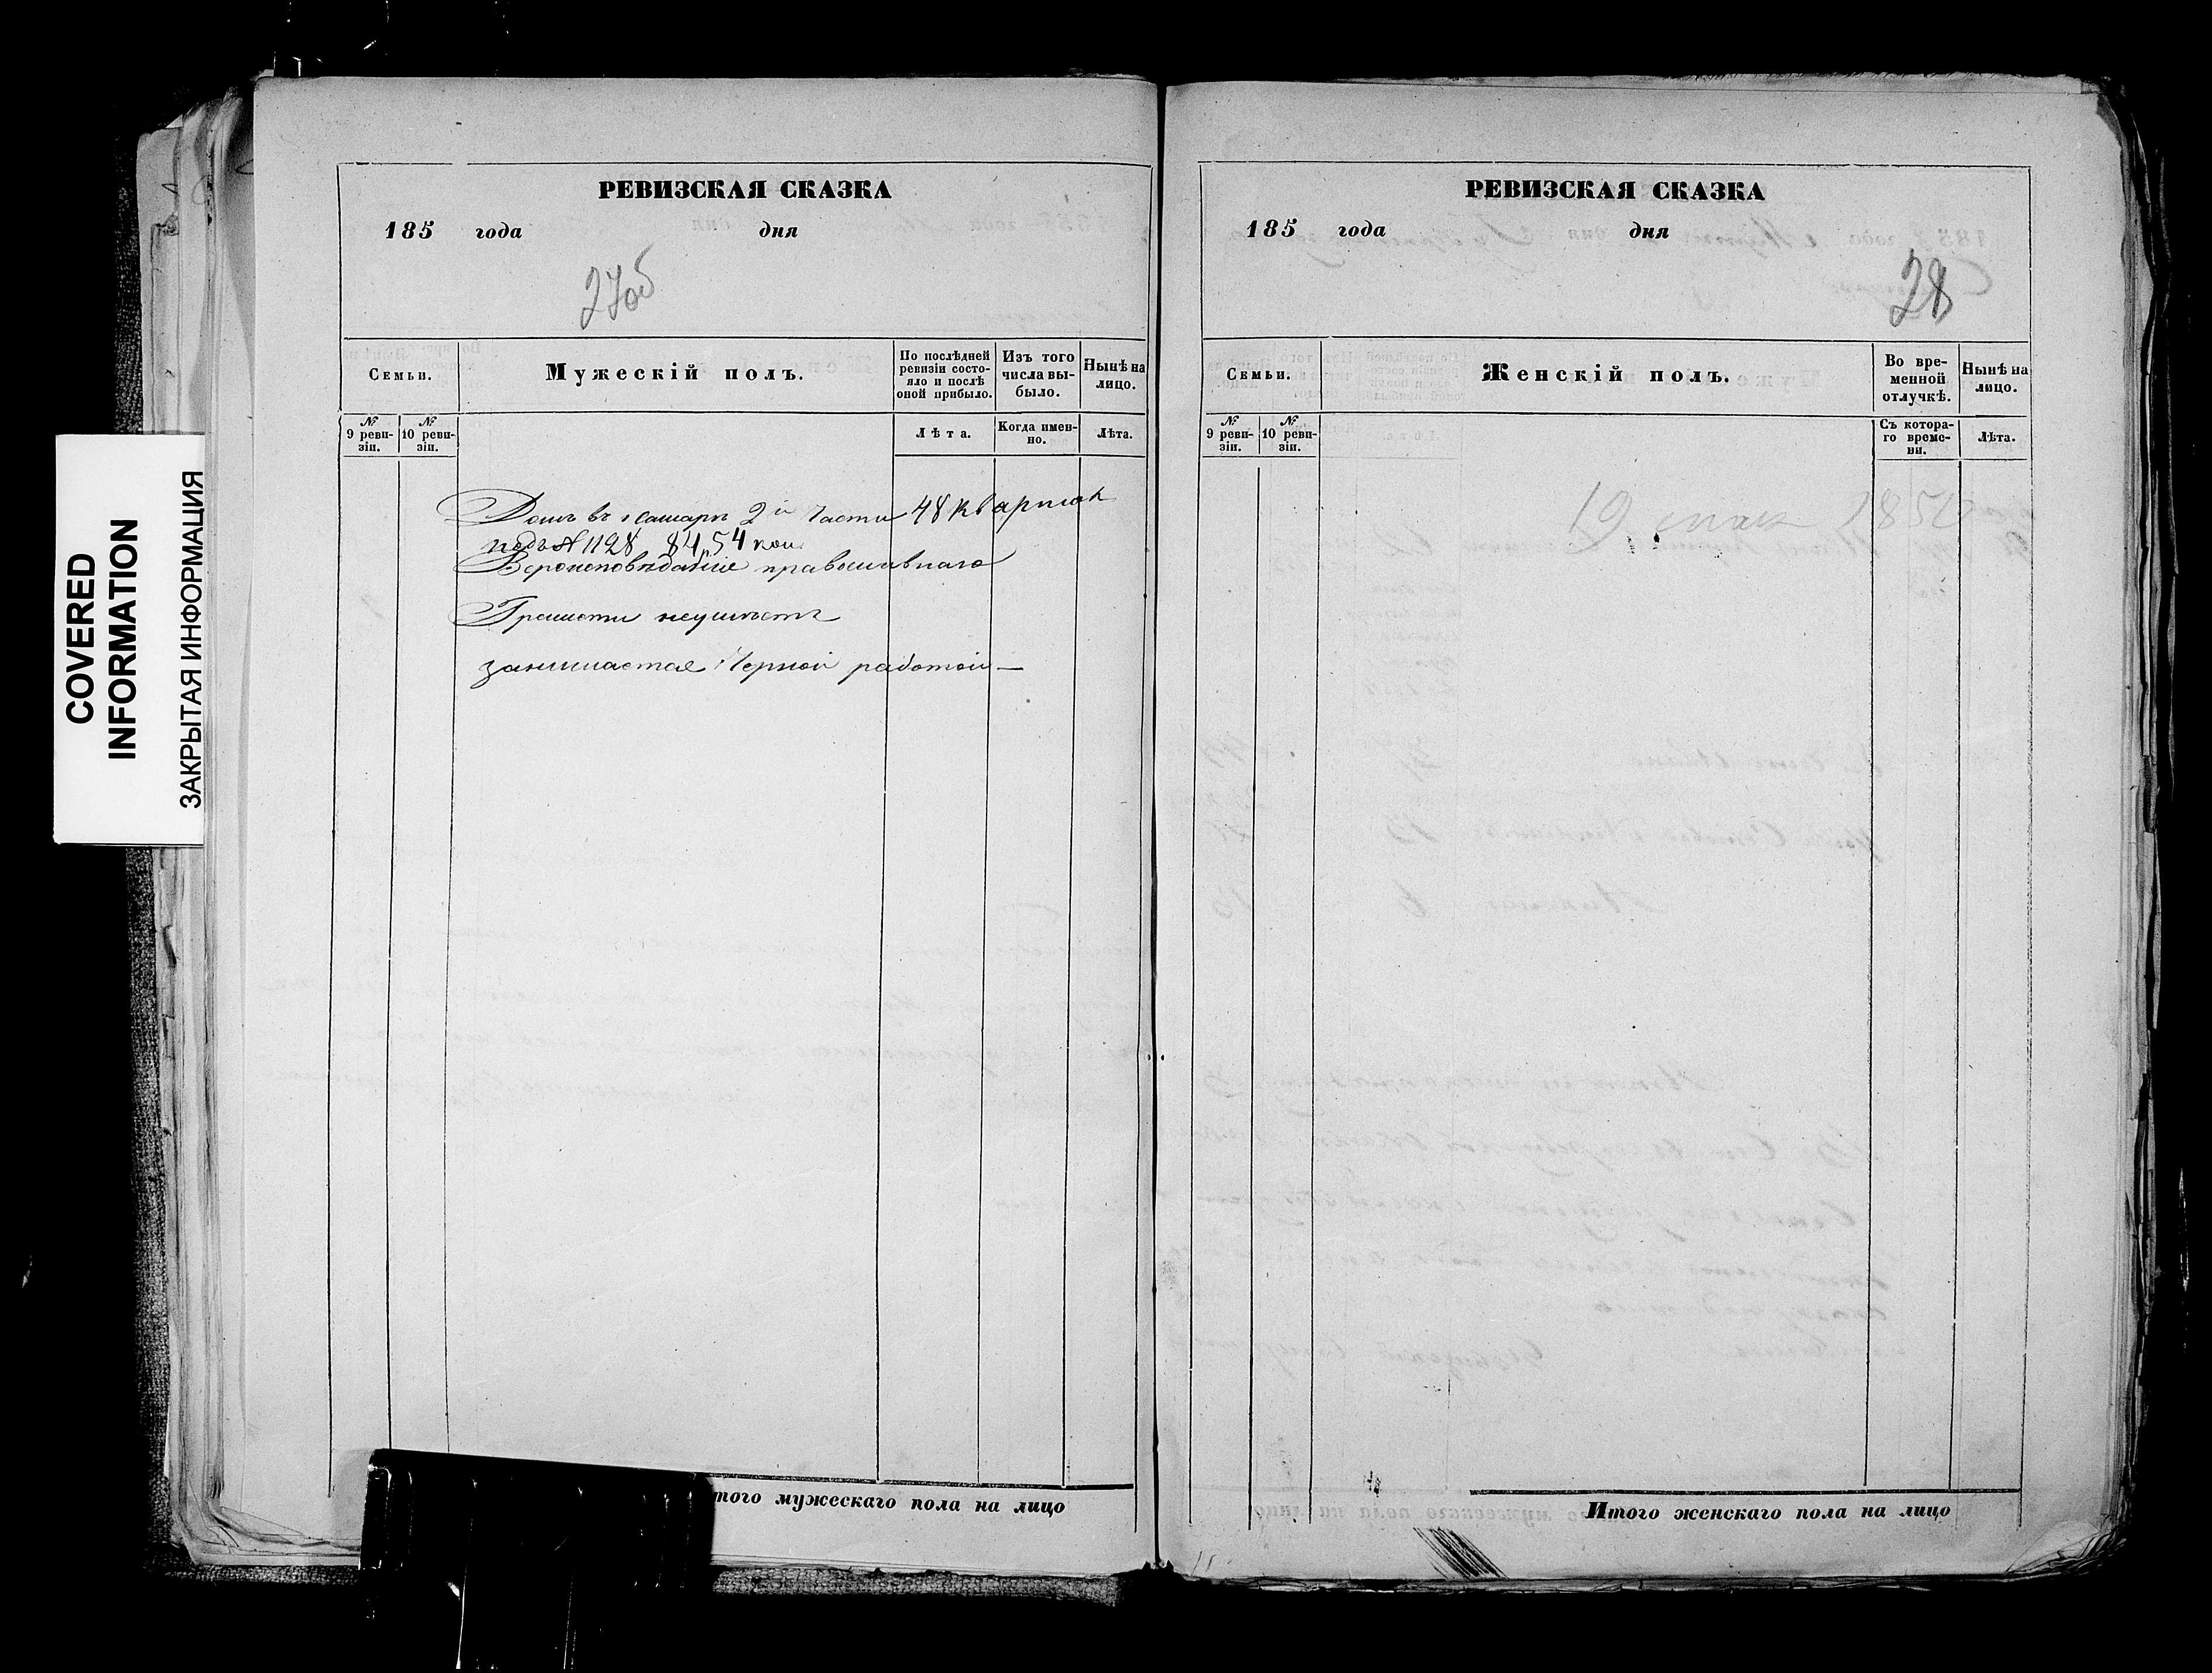 COVERED
INFORMATION
ЗАКРЫТАЯ ИНФОРМАЦИЯ
РЕВИЗСКАЯ СКАЗКА
185 года дня
27об
Семьи.
Мужескій полъ.
По послѣдней
ревизіи состо-
яло и послѣ
оной прибыло.
Изъ того
числа вы-
было.
Нынѣ на
лицо.
№
9 реви-
зіи.
№
10 реви-
зіи.
Лѣта.
Когда имен-
но.
Лѣта.
Домъ въ г Самарѣ 2й части 48 квартал
подъ № 1128 84р 54 коп
Вероисповѣданіе православнаго
Грамоти неумѣетъ
занимается Черной работой —
того мужескаго пола на лицо
РЕВИЗСКАЯ СКАЗКА
185 года дня
28
Семьи.
Женскій полъ.
Во вре-
менной
отлучкѣ.
Нынѣ на
лицо.
№
9 реви-
зіи.
№
10 реви-
зіи.
Съ котора-
го време-
ни.
Лѣта.
19 мая 1850
Итого женскаго пола на лицо